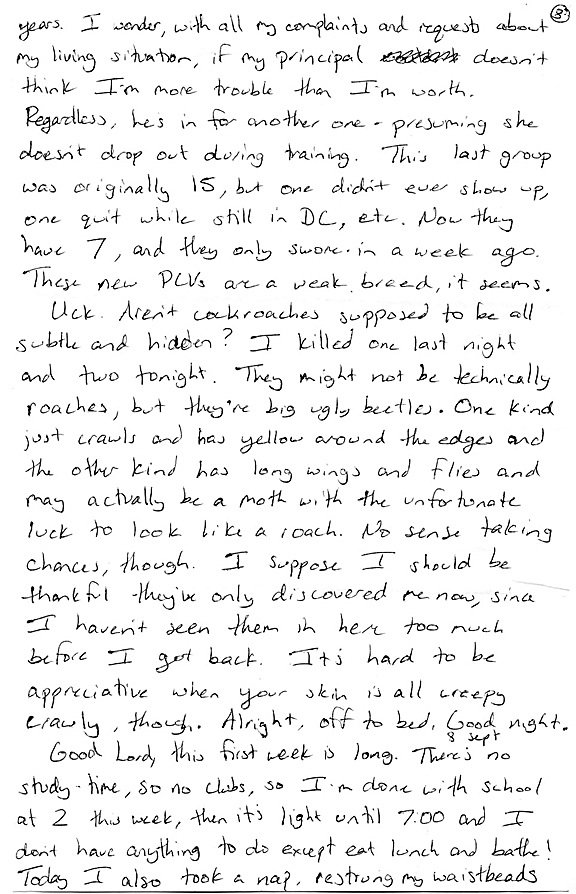 ③
years. I wonder, with all my complaints and requests about
my living situation, if my principal doesn't
think I'm more trouble than I'm worth.
Regardless, he's in for another one - presuming she
doesn't drop out during training. This last group
was originally 15, but one didn't ever show up,
one quit while still in DC, etc. Now they
have 7, and they only swore-in a week ago.
These new PCVs are a weak breed, it seems.
Uck. Aren't cockroaches supposed to be all
subtle and hidden? I killed one last night
and two tonight. They might not be technically
roaches, but they're big ugly beetles. One kind
just crawls and has yellow around the edges and
the other kind has long wings and flies and
may actually be a moth with the unfortunate
luck to look like a roach. No sense taking
chances, though. I suppose I should be
thankful they've only discovered me now, since
I haven't seen them in here too much
before I got back. It's hard to be
appreciative when your skin is all creepy
crawly, though. Alright, off to bed. Good night.
8 sept
Good Lord, this first week is long. There's no
study-time, so no clubs, so I'm done with school
at 2 this week, then it's light until 7:00 and I
don't have anything to do except eat lunch and bathe!
Today I also took a nap, restrung my waistbeads